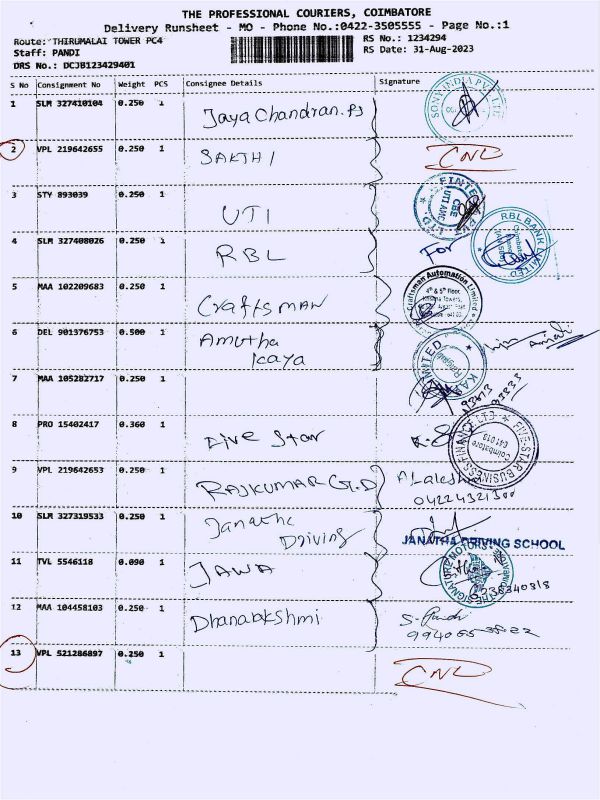 THE PROFESSIONAL COURIERS, COIMBATORE
Delivery Runsheet - MO - Phone No.:0422-3505555 - Page No.:1
Route: THIRUMALAI TOWER PC4 RS No.: 1234294
Staff: PANDI RS Date: 31-Aug-2023
DRS No.: DCJB123429401
S No Consignment No Weight PCS Consignee Details Signature
1 SLM 327410104 0.250 1 Jaya Chandran. PS SONY INDIA PVT LTD
2 VPL 219642655 0.250 1 SAKTHI CNL
3 STY 893039 0.250 1 UTI LTD. CBE
4 SLM 327408026 0.250 1 RBL For RBL BANK LIMITED
5 MAA 102209683 0.250 1 Craftsman Craftsman Automation Limited 4th & 5th floor,
6 DEL 901376753 0.500 1 Amutha
Kaya LIMITED
7 MAA 105282717 0.250 1
8 PRO 15402417 0.360 1 Five Star FIVE-STAR BUSINESS FINANCE LTD Coimbatore 641 018
9 VPL 219642653 0.250 1 RAJKUMAR
10 SLM 327319533 0.250 1 Janatha
Driving JANATHA DRIVING SCHOOL
11 TVL 5546118 0.090 1 JAWA THE SIGNATURE MOTORS
12 MAA 104458103 0.250 1 Dhanalakshmi
13 VPL 521286897 0.250 1 CNL